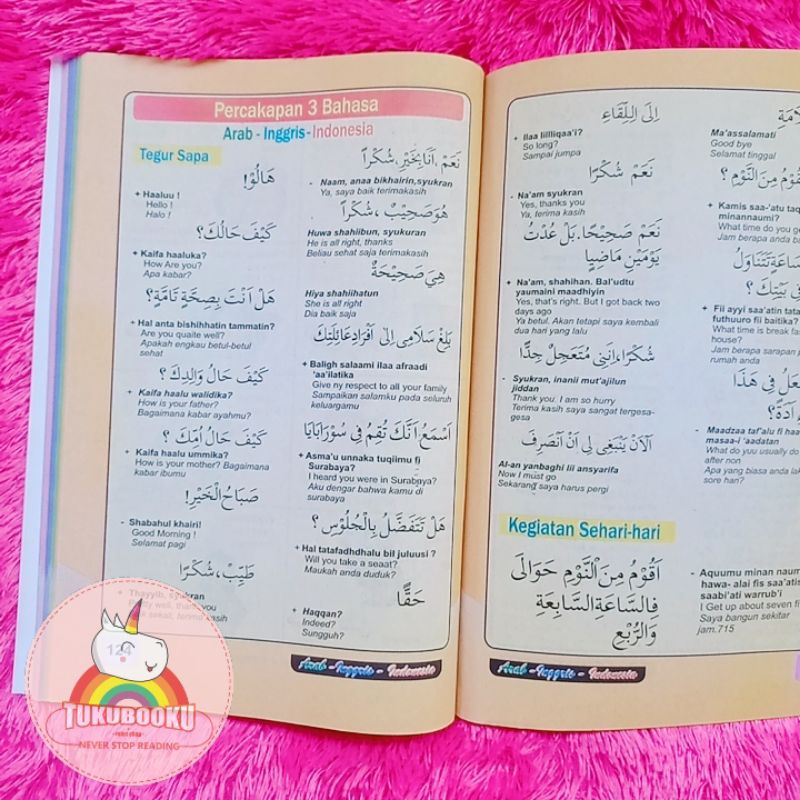 Percakapan 3 Bahasa
Arab - Inggris - Indonesia
Tegur Sapa
هَالُوْ!
+ Haaluu !
Hello !
Halo !
كَيْفَ حَالُكَ؟
+ Kaifa haaluka?
How are You?
Apa kabar?
هَلْ اَنْتَ بِصِحَّةٍ تَامَّةٍ؟
+ Hal anta bishihhatin tammatin?
Are you quaite well?
Apakah engkau betul-betul
sehat
كَيْفَ حَالُ وَالِدِكَ؟
+ Kaifa haalu walidika?
How is your father?
Bagaimana kabar ayahmu?
كَيْفَ حَالُ اُمِّكَ؟
+ Kaifa haalu ummika?
How is your mother? Bagaimana
kabar ibumu
صَبَاحُ الْخَيْرِ!
- Shabahul khairi!
Good Morning !
Selamat pagi
طَيِّبْ، شُكْرًا
+ Thayyib, syukran
Pretty well, thank you
sekali, terima kasih
124
نَعَمْ، اَنَا بِخَيْرٍ، شُكْرًا
- Naam, anaa bikhairin,syukran
Ya, saya baik terimakasih
هُوَ صَحِيْبٌ، شُكْرًا
Huwa shahiibun, syukuran
He is all right, thanks
Beliau sehat saja terimakasih
هِيَ صَحِيْحَةٌ
Hiya shahiihatun
She is all right
Dia baik saja
بَلِّغْ سَلَامِى اِلَى اَفْرَادِ عَائِلَتِكَ
+ Baligh salaami ilaa afraadi
'aa'ilatika
Give ny respect to all your family
Sampaikan salamku pada seluruh
keluargamu
اَسْمَعُ اَنَّكَ تُقِمُ فِى سُوْرَابَايَا
+ Asma'u unnaka tuqiimu fi
Surabaya?
I heard you were in Surabaya?
Aku dengar bahwa kamu di
surabaya
هَلْ تَتَفَضَّلُ بِالْجُلُوْسِ؟
+ Hal tatafadhdhalu bil juluusi ?
Will you take a seaat?
Maukah anda duduk?
حَقًّا
+ Haqqan?
Indeed?
Sungguh?
Arab - Inggris - Indonesia
اِلَى اللِّقَاءِ
+ Ilaa lillliqaa'i?
So long?
Sampai jumpa
نَعَمْ شُكْرًا
- Na'am syukran
Yes, thanks you
Ya, terima kasih
نَعَمْ صَحِيْحًا. بَلْ عُدْتُ
يَوْمَيْنِ مَاضِيًا
+ Na'am, shahihan. Bal'udtu
yaumaini maadhiyin
Yes, that's right. But I got back two
days ago
Ya betul. Akan tetapi saya kembali
dua hari yang lalu
شُكْرًا، اِنَّنِى مُتَعَجِّلٌ جِدًّا
- Syukran, inanii mut'ajilun
jiddan
Thank you. I am so hurry
Terima kasih saya sangat tergesa-
gesa
اَلْآنَ يَنْبَغِى لِى اَنْ اَنْصَرِفَ
Al-an yanbaghi lii ansyarifa
Now I must go
Sekarang saya harus pergi
Kegiatan Sehari-hari
اَقُوْمُ مِنَ النَّوْمِ حَوَالَى
فِالسَّاعَةِ السَّابِعَةِ
وَالرُّبْعِ
Ma'assalamati
Good bye
Selamat tinggal
مِنَ النَّوْمِ؟
+ Kamis saa-'atu
minannaumi?
What time do you
Jam berapa anda
تَتَنَاوَلُ
فِى بَيْتِكَ؟
+ Fii ayyi saa'atin
futhuuro fii baitika?
What time is break
house?
Jam berapa sarapan
rumah anda
فِى هٰذَا
- Maadzaa taf'alu fi
masaa-i 'aadatan
What do yuu usually do
after non
Apa yang biasa anda
sore han?
- Aquumu minan
hawa- alai fis saa'atin
saabi'ati warrub'i
I Get up about seven
Saya bangun sekitar
jam.715
Arab - Inggris - Indonesia
TUKUBOOKU
NEVER STOP READING